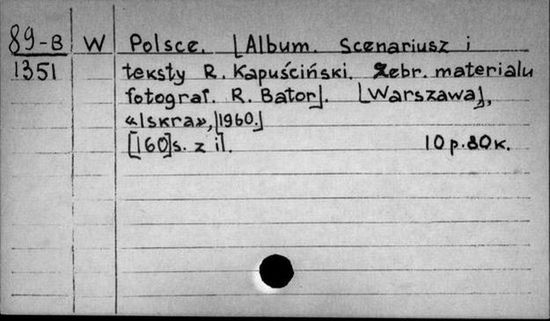 89-B W Polsce. [Album. Scenariusz i
1351 teksty R. Kapuściński. Zebr. materialu
fotograf. R. Bator]. [Warszawa],
«Iskra», [1960.]
[160]s. z il. 10 p. 80 k.